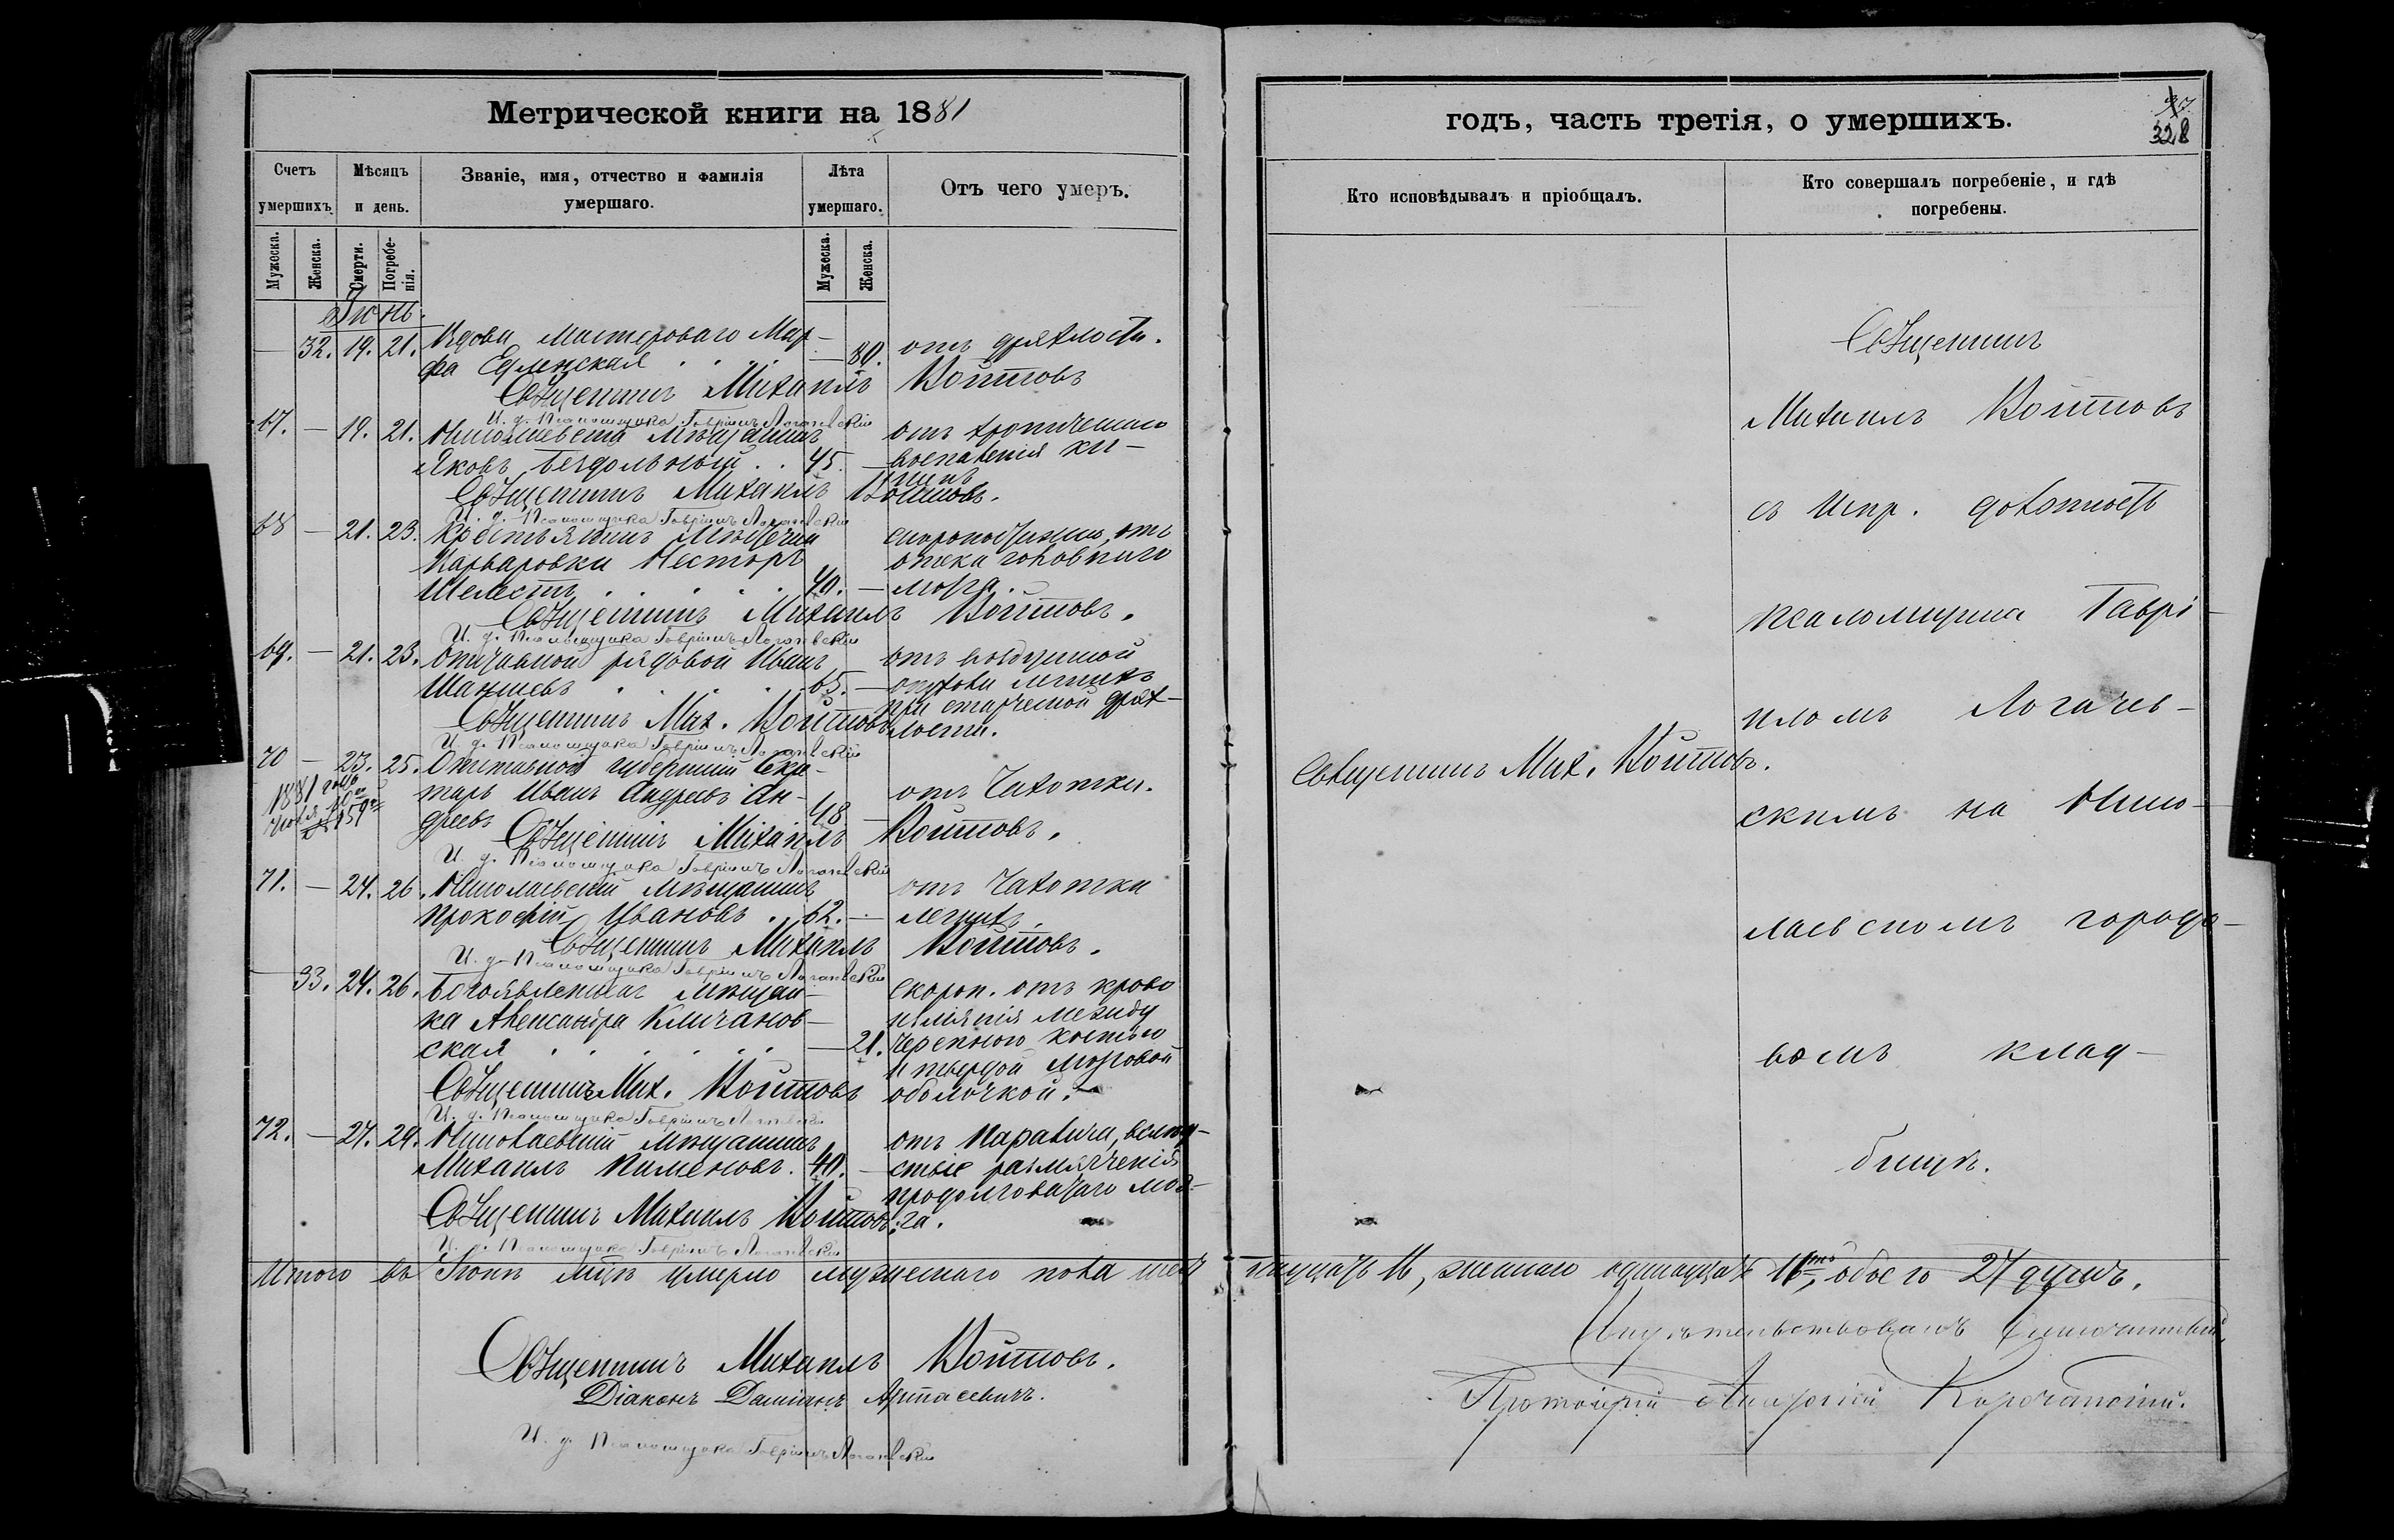 Метрической книги на 1881
Счетъ умершихъ.
Мѣсяцъ и день.
Званіе, имя, отчество и фамилія умершаго.
Лѣта умершаго.
Отъ чего умеръ.
Мужеска.
Женска.
Смерти.
Погребенія.
Мужеска.
Женска.
Іюнь.
— 32. 19. 21. Вдова мастероваго Мар- отъ дряхлости.
фа Едлинская . . . — 80.
Священникъ Михаилъ Войтовъ
И. д. Псаломщика Гавріилъ Логачевскій
67. — 19. 21. Николаевскій мѣщанинъ отъ хроническаго
Яковъ Бездольный . . 45. — воспаленія ки-
шекъ
Священникъ Михаилъ Войтовъ.
И. д. Псаломщика Гавріилъ Логачевскій
68 — 21. 23. Крестьянинъ скоропостижно, отъ
Варваровки Несторъ отека головнаго
Шелестъ . . . . . 40. — мозга.
Священникъ Михаилъ Войтовъ.
И. д. Псаломщика Гавріилъ Логачевскій
69. — 21. 23. Отставной рядовой Иванъ отъ воздушной
65. — опухоли легкихъ
при старческой дрях-
Священникъ Мих. Войтовъ лости.
И. д. Псаломщика Гавріилъ Логачевскій
70 — 23. 25. Отставной губернскій Секре-
1881 года
тарь Иванъ Андреевъ Ан- отъ Чахотки.
дреевъ 48 —
Священникъ Михаилъ Войтовъ.
И. д. Псаломщика Гавріилъ Логачевскій
71. — 24. 26. Николаевскій мѣщанинъ отъ Чахотки
Прокофій Ивановъ . 62. — легкихъ.
Священникъ Михаилъ Войтовъ.
И. д. Псаломщика Гавріилъ Логачевскій
— 33. 24. 26. Богоявленская мѣщан- скороп. отъ крово
ка Александра Кличанов- изліянія между
ская . . . . . . — 21. черепною костью
и твердой мозговой
Священникъ Мих. Войтовъ оболочкой.
И. д. Псаломщика Гавріилъ Логачевскій
72. — 27. 29. Николаевскій мѣщанинъ отъ Паралича, вслѣд-
Михаилъ Пименовъ. 40. — ствіе размягченія
продолговатаго моз-
Священникъ Михаилъ Войтовъ. га.
И. д. Псаломщика Гавріилъ Логачевскій
Итого въ Іюнѣ мцѣ умерло мужескаго пола шест
Священникъ Михаилъ Войтовъ.
Діаконъ Даміанъ Арпасевичъ.
И. д. Псаломщика Гавріилъ Логачевскій
годъ, часть третія, о умершихъ.
328
Кто исповѣдывалъ и пріобщалъ.
Кто совершалъ погребеніе, и гдѣ погребены.
Священникъ
Михаилъ Войтовъ
съ Испр. должность
псаломщика Гаврі-
иломъ Логачев-
Священникъ Мих. Войтовъ.
скимъ на Нико-
лаевскомъ городо-
вомъ клад-
бищѣ.
надцать 16, женскаго одинадцать 11ть, обоего 27 душъ.
Протоіерей